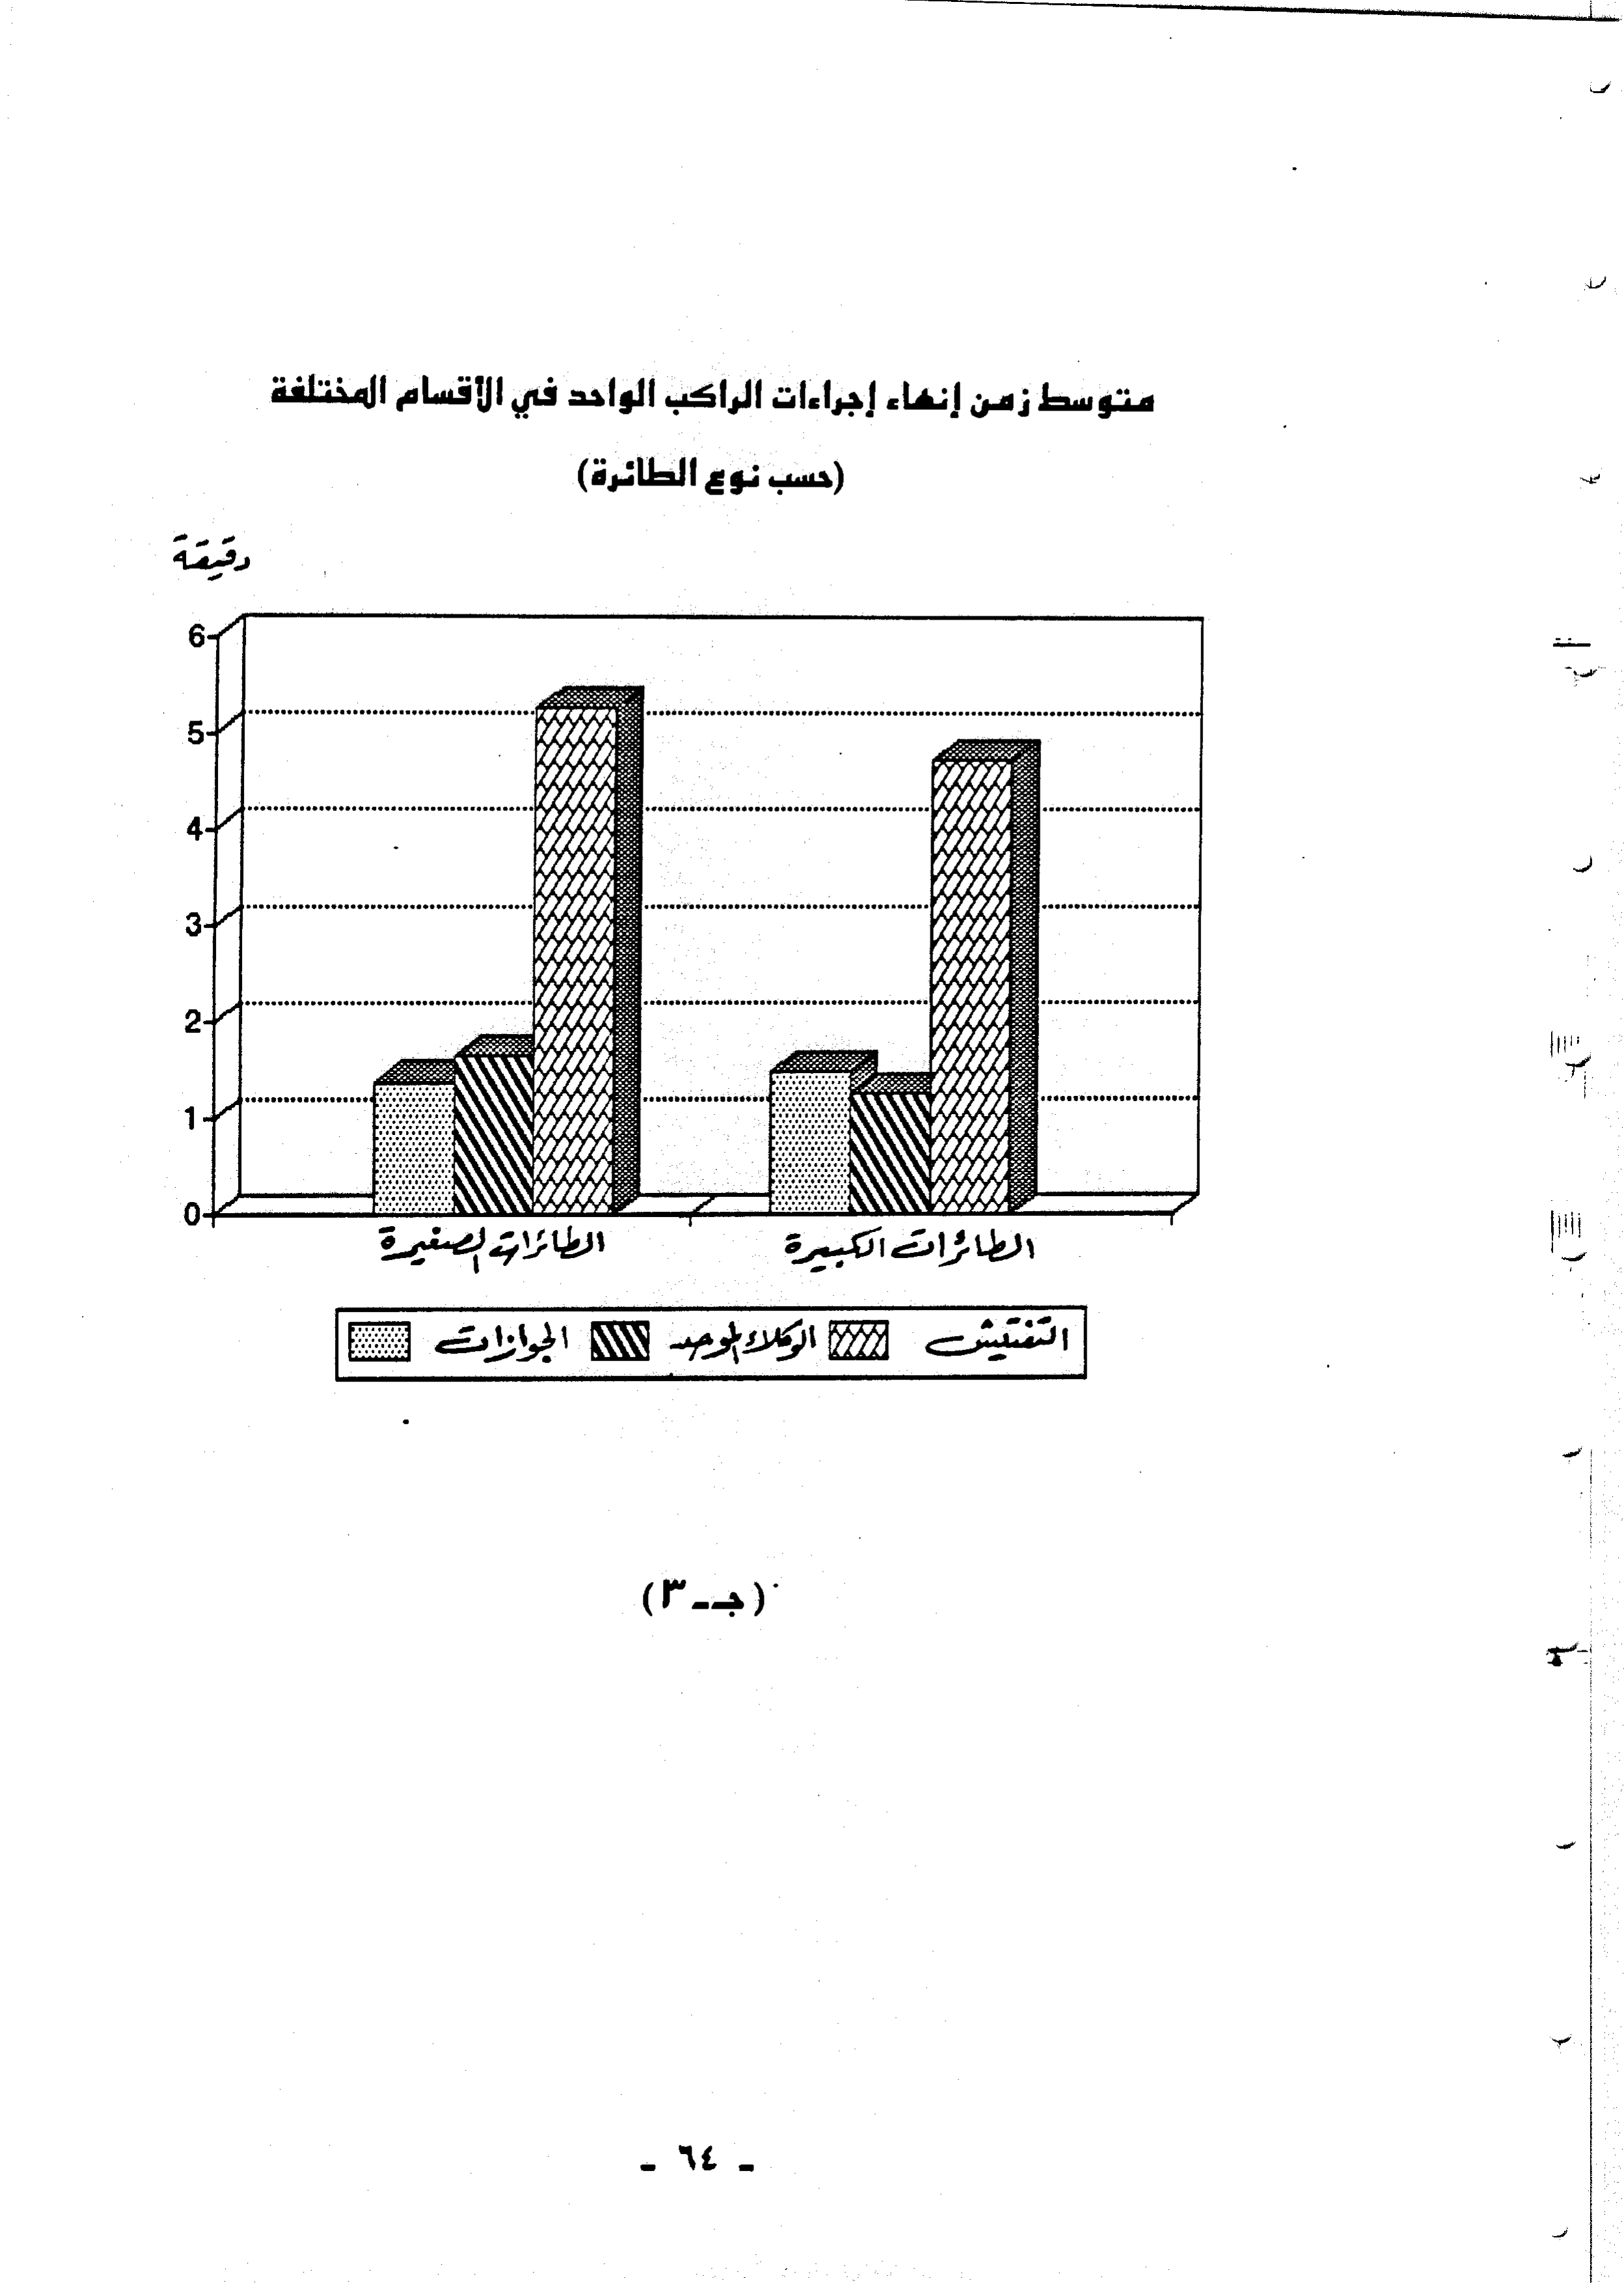 متوسط زمن إنهاء إجراءات الراكب الواحد في الأقسام المختلفة
(حسب نوع الطائرة)
دقيقة
6
5
4
3
2
1
0
الطائرات الصغيرة الطائرات الكبيرة
التفتيش الوكلاء الموحد الجوازات
(جـ-٣)
- ٦٤ -